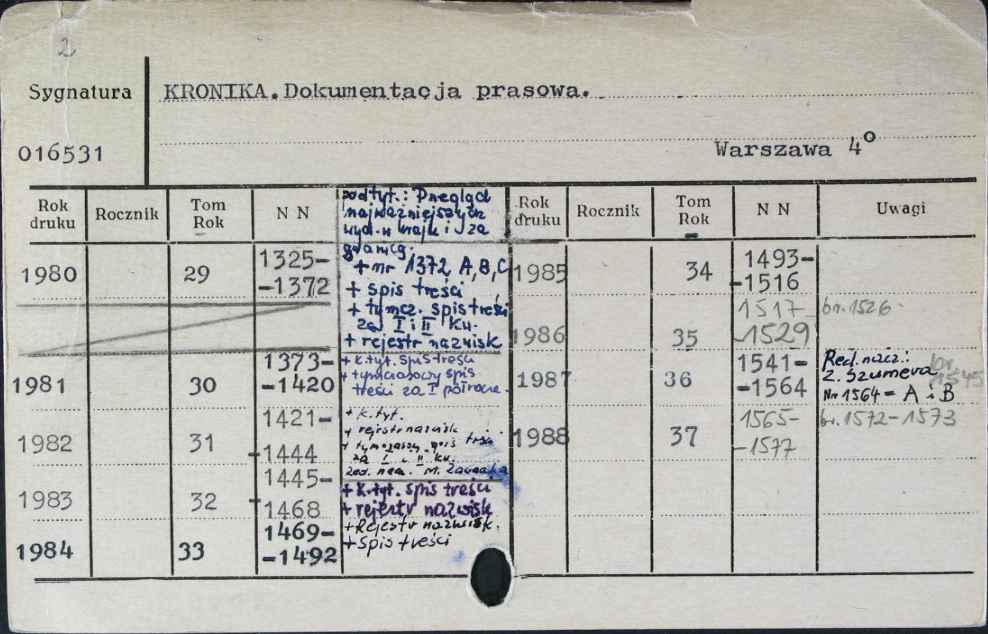 2
Sygnatura KRONIKA. Dokumentacja prasowa.
016531 Warszawa 4º
Rok druku Rocznik Tom Rok N N podtyt.: Przegląd najważniejszych wyd. w kraju i za granicą. Rok druku Rocznik Tom Rok N N Uwagi
1980 29 1325-
-1372 + nr 1372 A, B, C
+ spis treści
+ tymcz. spis treści
za I i II kw.
+ rejestr nazwisk
1981 30 1373-
-1420 + k. tyt. spis treści
+ tymczasowy spis
treści za I półrocze.
1982 31 1421-
-1444 + k. tyt.
+ rejestr nazwisk
+ tymczasowy spis treści
za I i II kw.
1983 32 1445-
1468 + k. tyt. spis treści
+ rejestr nazwisk
1984 33 1469-
-1492 + Rejestr nazwisk.
+ Spis treści
1985 34 1493-
-1516
1986 35 1517-
-1529 br. 1526.
1987 36 1541-
-1564 Red. nacz.:
Z. Szumera br. 1545
Nr 1564 = A i B
1988 37 1565-
-1577 br. 1572-1573